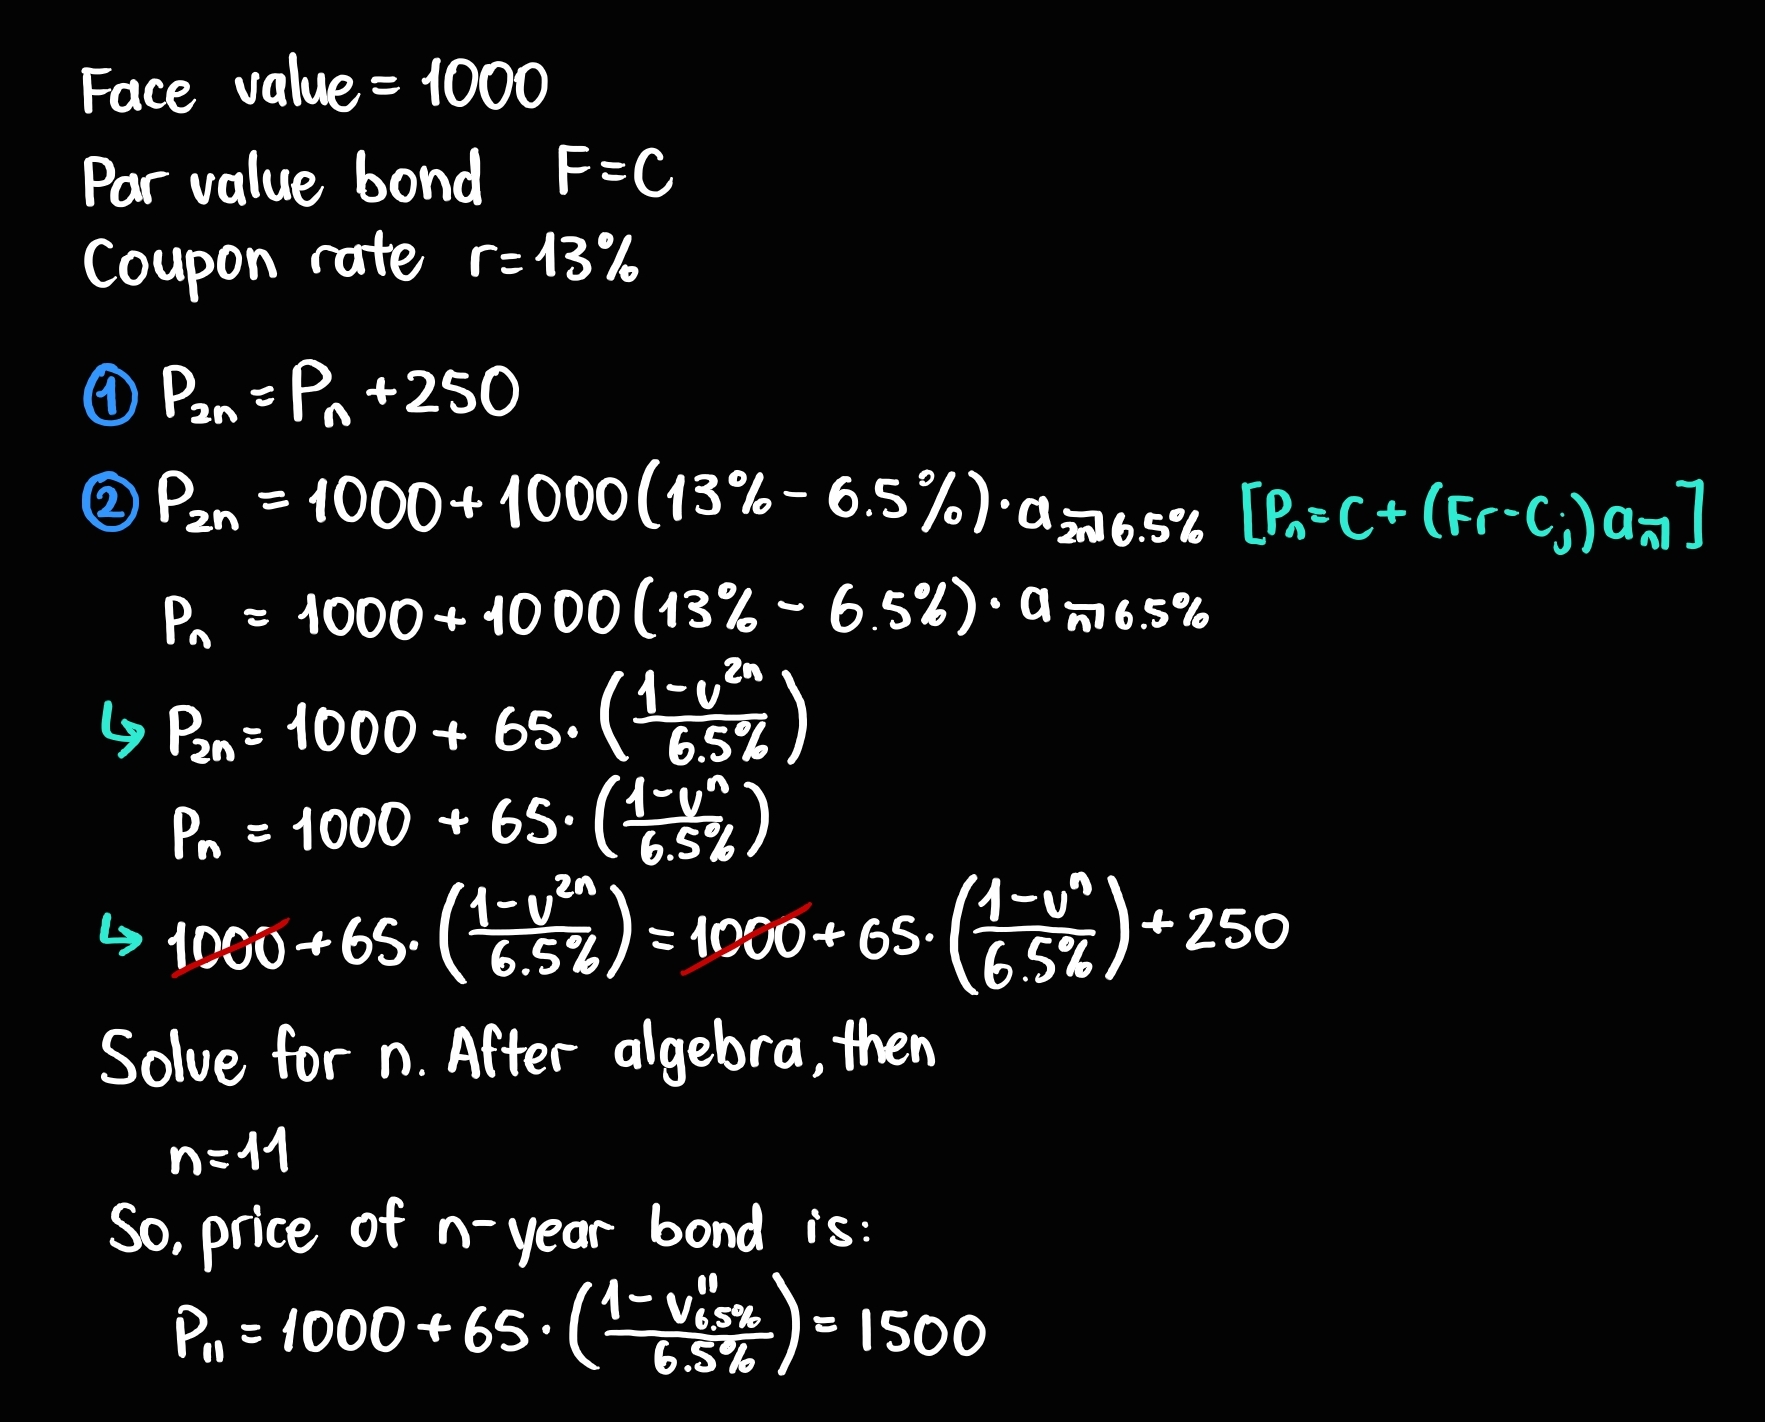 Face value = 1000
Par value bond F=C
Coupon rate r=13%
① P₂ₙ = Pₙ + 250
② P₂ₙ = 1000 + 1000(13% - 6.5%)·a₂ₙ̅|6.5% [Pₙ = C + (Fr - Cj)aₙ̅|]
Pₙ = 1000 + 1000(13% - 6.5%)·aₙ̅|6.5%
↳ P₂ₙ = 1000 + 65·((1-v²ⁿ)/6.5%)
Pₙ = 1000 + 65·((1-vⁿ)/6.5%)
↳ 1000 + 65·((1-v²ⁿ)/6.5%) = 1000 + 65·((1-vⁿ)/6.5%) + 250
Solve for n. After algebra, then
n=11
So, price of n-year bond is:
P₁₁ = 1000 + 65·((1-v¹¹₆.₅%)/6.5%) = 1500